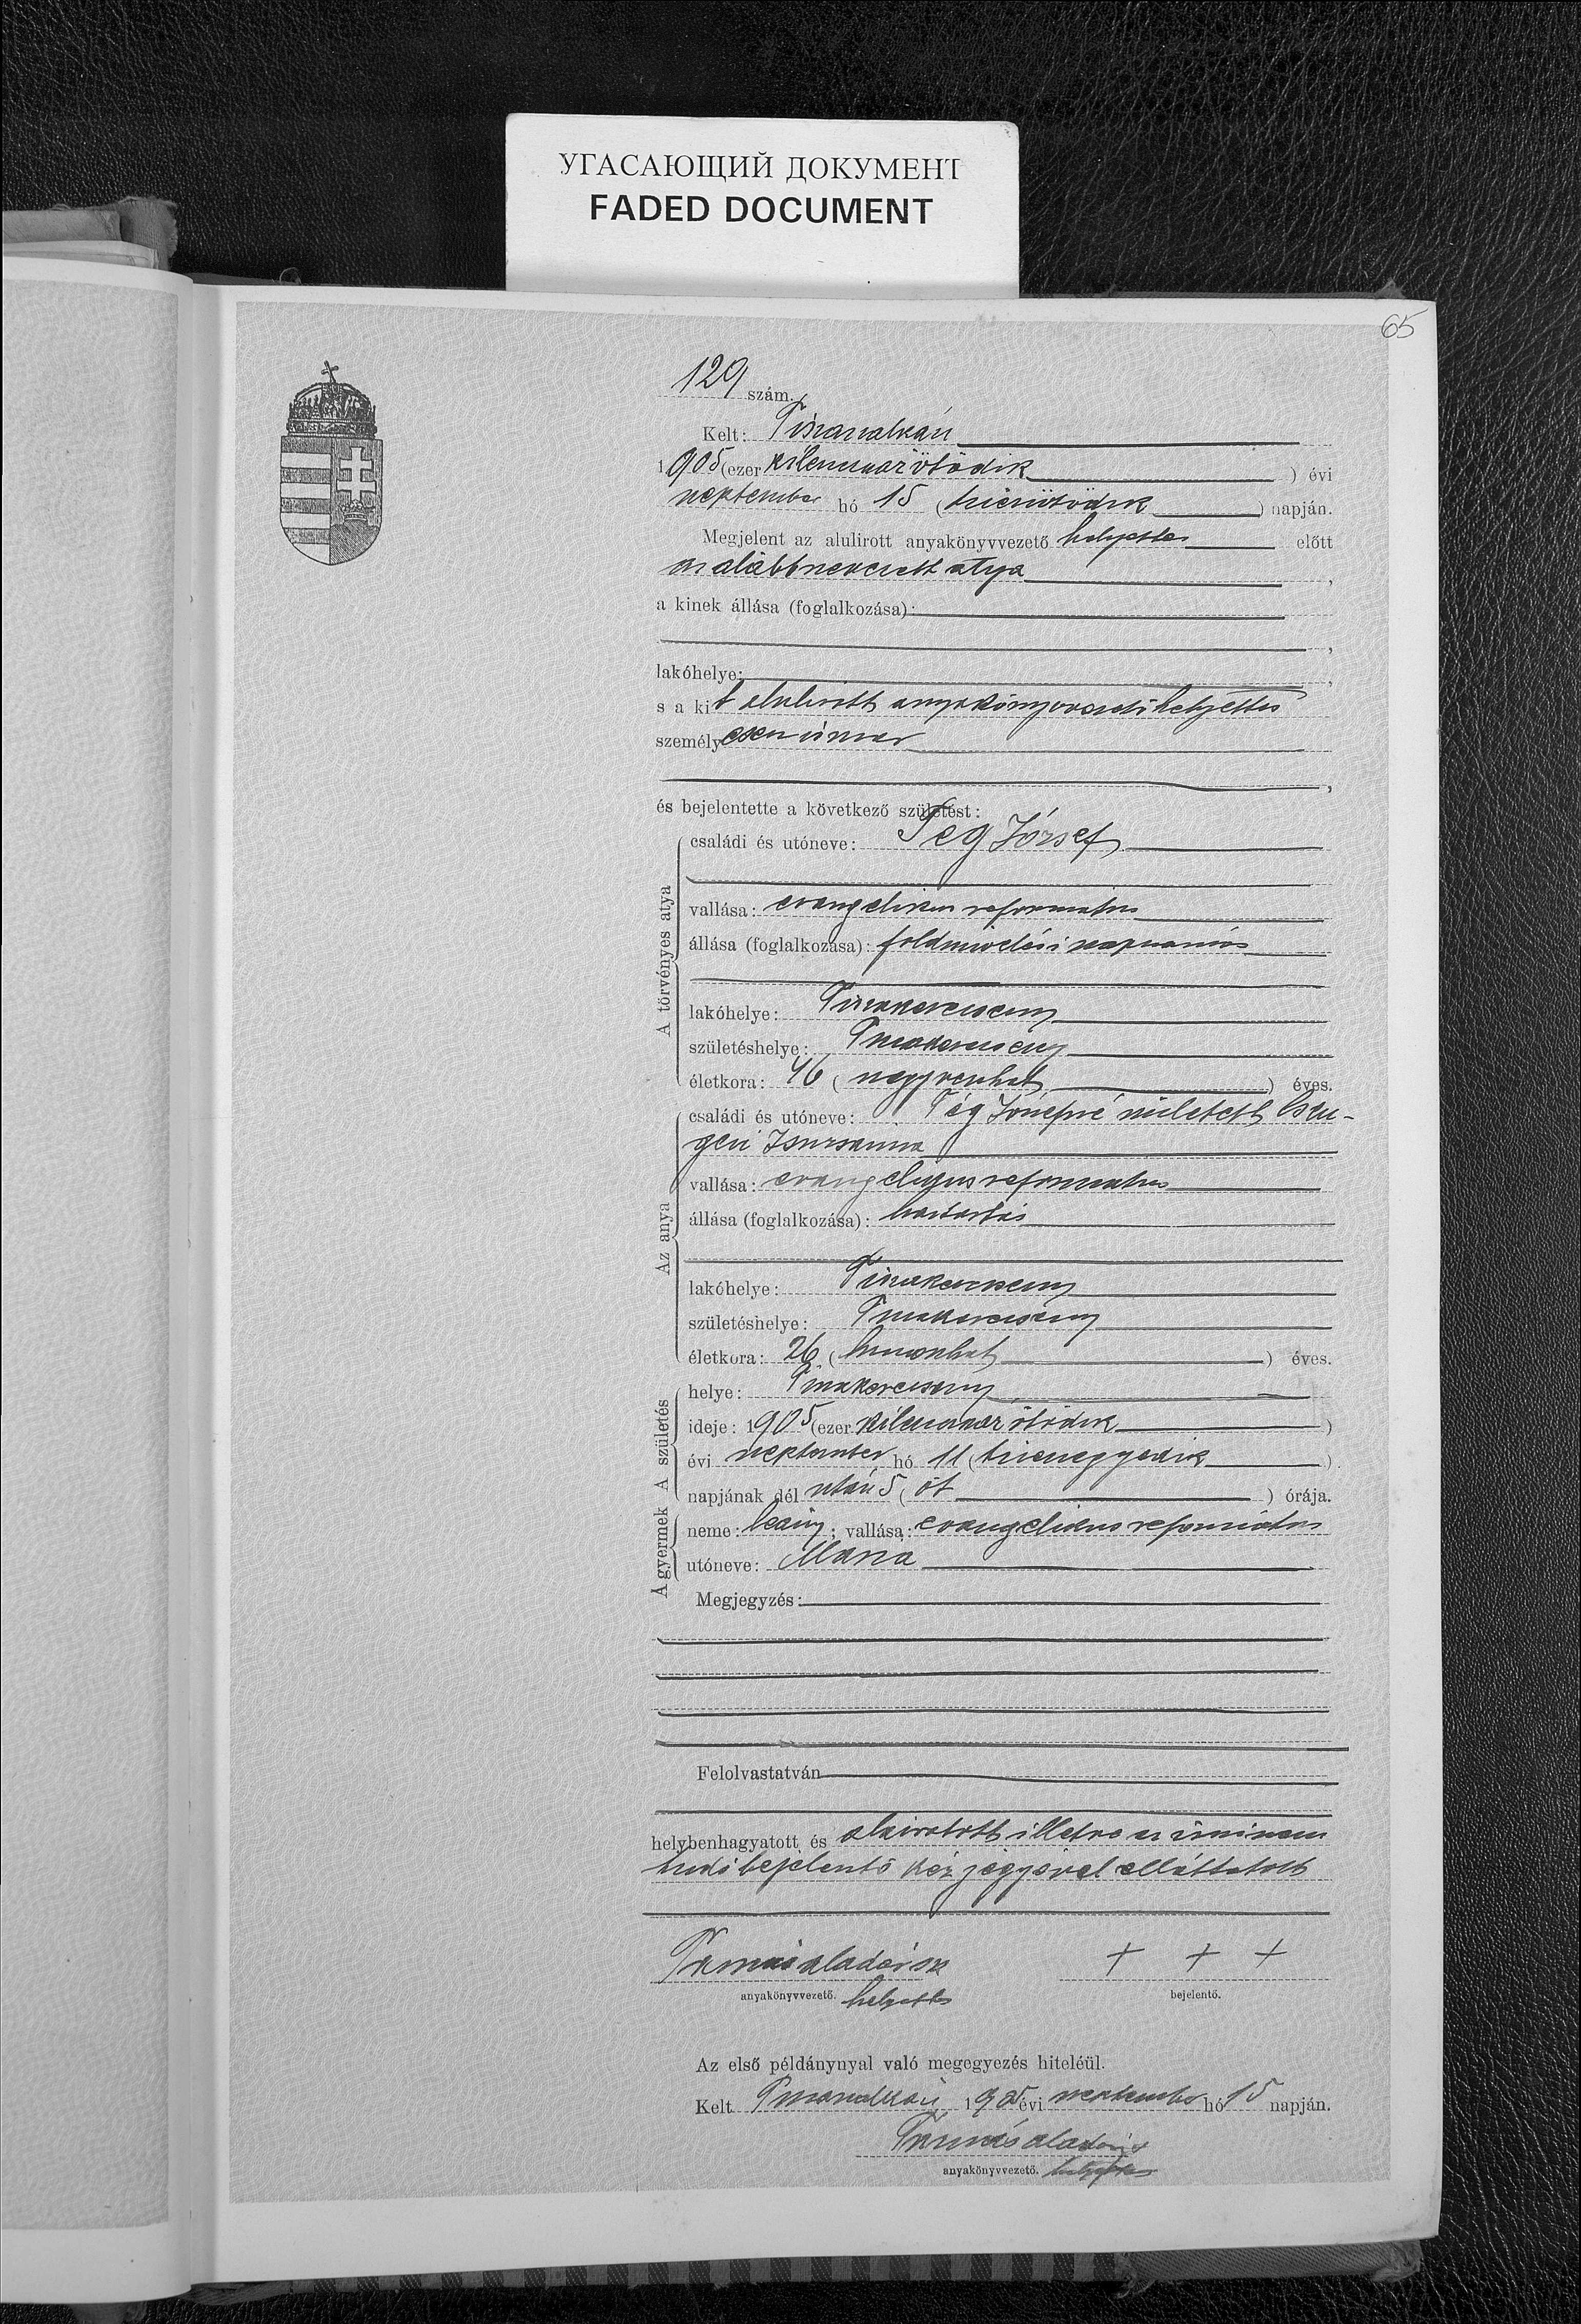 УГАСАЮЩИЙ ДОКУМЕНТ
FADED DOCUMENT
65
129 szám.
Kelt: Tiszaszalkán
1905 (ezer kilenczszázötödik) évi
szeptember hó 15 (tizenötödik) napján.
Megjelent az alulirott anyakönyvvezető helyettes előtt
az alább nevezett atya,
a kinek állása (foglalkozása):
,
lakóhelye: ,
s a kit alulirott anyakönyvvezetőhelyettes
személyesen ismer
,
és bejelentette a következő születést:
A törvényes atya
családi és utóneve: Tég József
vallása: evangelikus református
állása (foglalkozása): földmivelési napszámos
lakóhelye: Tiszakerecseny
születéshelye: Tiszakerecseny
életkora: 46 (negyvenhat) éves.
Az anya
családi és utóneve: Tég Józsefné született
Zsuzsánna
vallása: evangelikus református
állása (foglalkozása): háztartás
lakóhelye: Tiszakerecseny
születéshelye: Tiszakerecseny
életkora: 26 (huszonhat) éves.
A születés
helye: Tiszakerecseny
ideje: 1905 (ezer kilenczszáz ötödik)
évi szeptember hó 11 (tizenegyedik)
napjának dél után 5 (öt) órája.
A gyermek
neme: leány; vallása: evangelikus református
utóneve: Mária
Megjegyzés:
Felolvastatván
helybenhagyatott és aláiratott illetve az irni nem
tudó bejelentő kézjegyével elláttatott
Tamás Aladár sk + + +
anyakönyvvezető. helyettes bejelentő.
Az első példánynyal való megegyezés hiteléül.
Kelt Tiszaszalkán 1905 évi szeptember hó 15 napján.
Tamás Aladár
anyakönyvvezető. helyettes